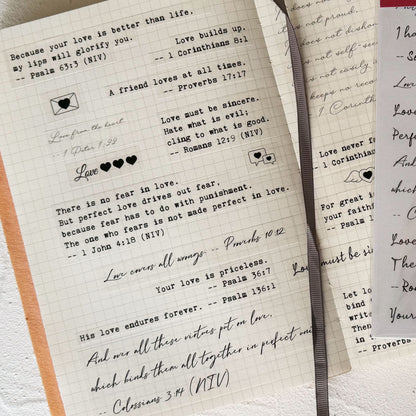 Because your love is better than life,
my lips will glorify you.
-- Psalm 63:3 (NIV)
Love builds up.
-- 1 Corinthians 8:1
A friend loves at all times.
-- Proverbs 17:17
Love from the heart.
1 Peter 1:22
Love must be sincere.
Hate what is evil;
cling to what is good.
-- Romans 12:9 (NIV)
Love
There is no fear in love.
But perfect love drives out fear,
because fear has to do with punishment.
The one who fears is not made perfect in love.
-- 1 John 4:18 (NIV)
Love covers all wrongs -- Proverbs 10:12
Your love is priceless.
-- Psalm 36:7
His love endures forever. -- Psalm 136:1
And over all these virtues put on love,
which binds them all together in perfect
-- Colossians 3:14 (NIV)
is not proud.
not self
is not easily
keeps no record
1 Corinth
Love never
-- 1 Corinthians
For great i
your faith
-- Psalm
must be si
Let lo
bind
write
Then
in
-- Proverbs
I ha
Love
Perfe
And
Love
The
-- Ro
Your